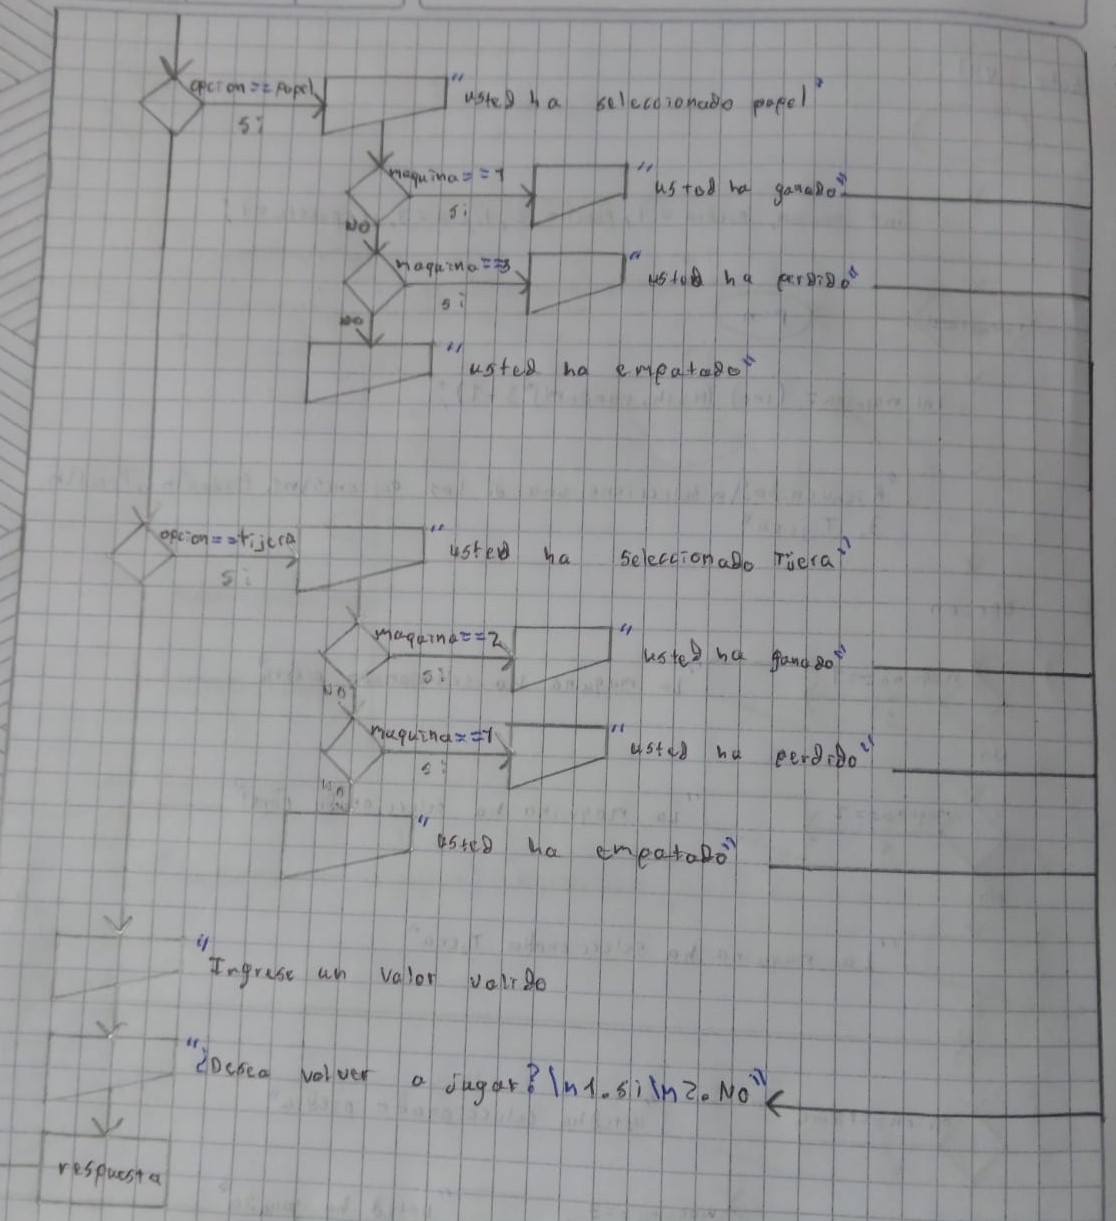 opcion==Papel
si
"usted ha seleccionado papel"
maquina==1
si
"usted ha ganado"
NO
maquina==3
si
"usted ha perdido"
NO
"usted ha empatado"
opcion==tijera
si
"usted ha seleccionado Tijera"
maquina==2
si
"usted ha ganado"
NO
maquina==1
si
"usted ha perdido"
NO
"usted ha empatado"
"Ingrese un valor valido
"¿Desea volver a jugar?\n1.si\n2.No"
respuesta